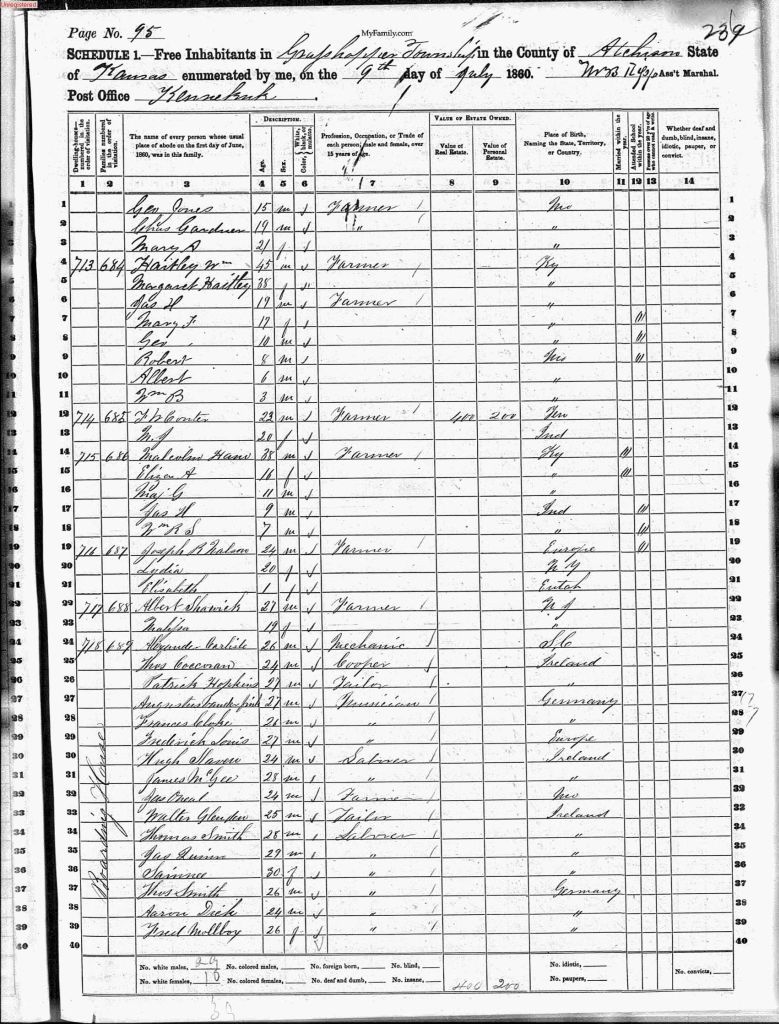 Unregistered
MyFamily.com
Page No. 95
239
SCHEDULE 1.—Free Inhabitants in Grasshopper Township in the County of Atchison State
of Kansas enumerated by me, on the 9th day of July 1860. Ass't Marshal.
Post Office Kennekuk
Dwelling-houses—numbered in the order of visitation.
Families numbered in the order of visitation.
The name of every person whose usual place of abode on the first day of June, 1860, was in this family.
DESCRIPTION.
Age. Sex. Color, White, black, or mulatto.
Profession, Occupation, or Trade of each person, male and female, over 15 years of age.
VALUE OF ESTATE OWNED.
Value of Real Estate. Value of Personal Estate.
Place of Birth, Naming the State, Territory, or Country.
Married within the year. Attended School within the year.
Whether deaf and dumb, blind, insane, idiotic, pauper, or convict.
1 2 3 4 5 6 7 8 9 10 11 12 13 14
1 Geo Jones 15 m Farmer Mo 1
2 Chas Gardner 19 m " " 2
3 Mary A 21 f " 3
4 713 684 Haitley Wm 45 m Farmer Ky 4
5 Margaret Haitley 38 f " 5
6 Jas H 19 m Farmer " 6
7 Mary F 17 f " 7
8 Geo 10 m " 8
9 Robert 8 m Mo 9
10 Albert 6 m " 10
11 Wm B 3 m " 11
12 714 685 23 m Farmer 400 200 12
13 M J 20 f Ind 13
14 715 686 Malcolm Ham 38 m Farmer Ky 14
15 Eliza A 16 f " 15
16 11 m " 16
17 Jas H 9 m Ind 17
18 Wm R S 7 m " 18
19 716 687 Joseph R Nalson 24 m Farmer Europe 19
20 Lydia 20 f N Y 20
21 Elisabeth 1 f Eutah 21
22 717 688 Albert Shawick 27 m Farmer N J 22
23 Malissa 19 f " 23
24 718 689 Alexander Carlisle 26 m Mechanic S C 24
25 Thos Corcoran 24 m Cooper Ireland 25
26 Patrick Hopkins 27 m Tailor " 26
27 27 m Musician Germany 27
28 Frances Cloke 26 m " " 28
29 Frederich Louis 27 m " Europe 29
30 Hugh Slaven 24 m Labrer Ireland 30
31 James McGee 28 m " " 31
32 Jas Oneal 24 m Farmer Mo 32
33 Walter Glenden 25 m Tailor Ireland 33
34 Thomas Smith 28 m Labrer " 34
35 Jas Quinn 29 m " " 35
36 30 f " " 36
37 Thos Smith 26 m " Germany 37
38 Aaron Dick 24 m " " 38
39 Fred Mollboy 26 f " " 39
40 40
Boarding House
No. white males, 29 No. colored males, No. foreign born, No. blind, No. idiotic,
No. white females, 10 No. colored females, No. deaf and dumb, No. insane, 400 200 No. paupers, No. convicts,
39